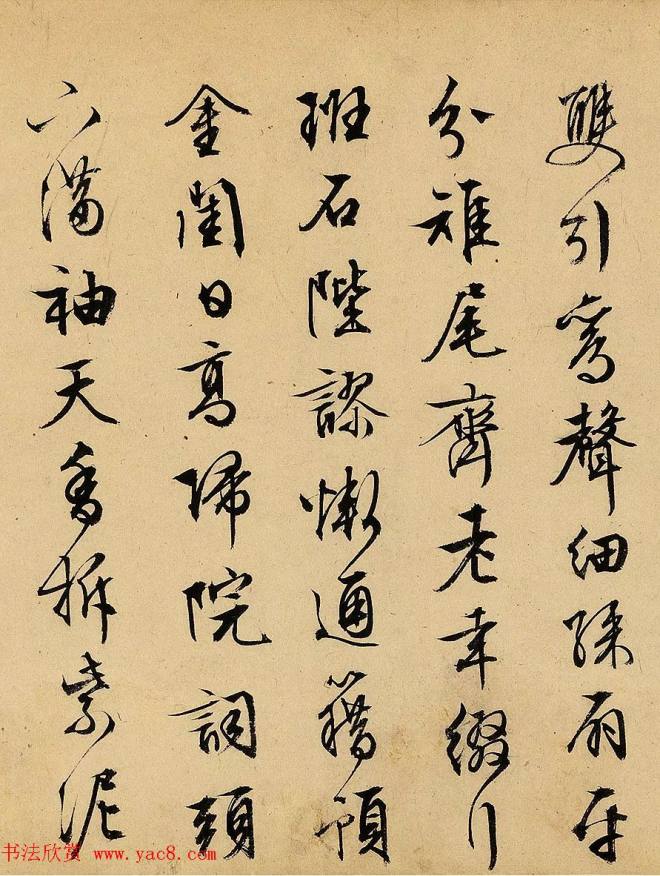 雙引鸞聲細綵扇平
分雉尾齊老幸綴行
班石陛謬慚通籍預
金閨日高歸院詞頭
下滿袖天香拆紫泥
书法欣赏 www.yac8.com